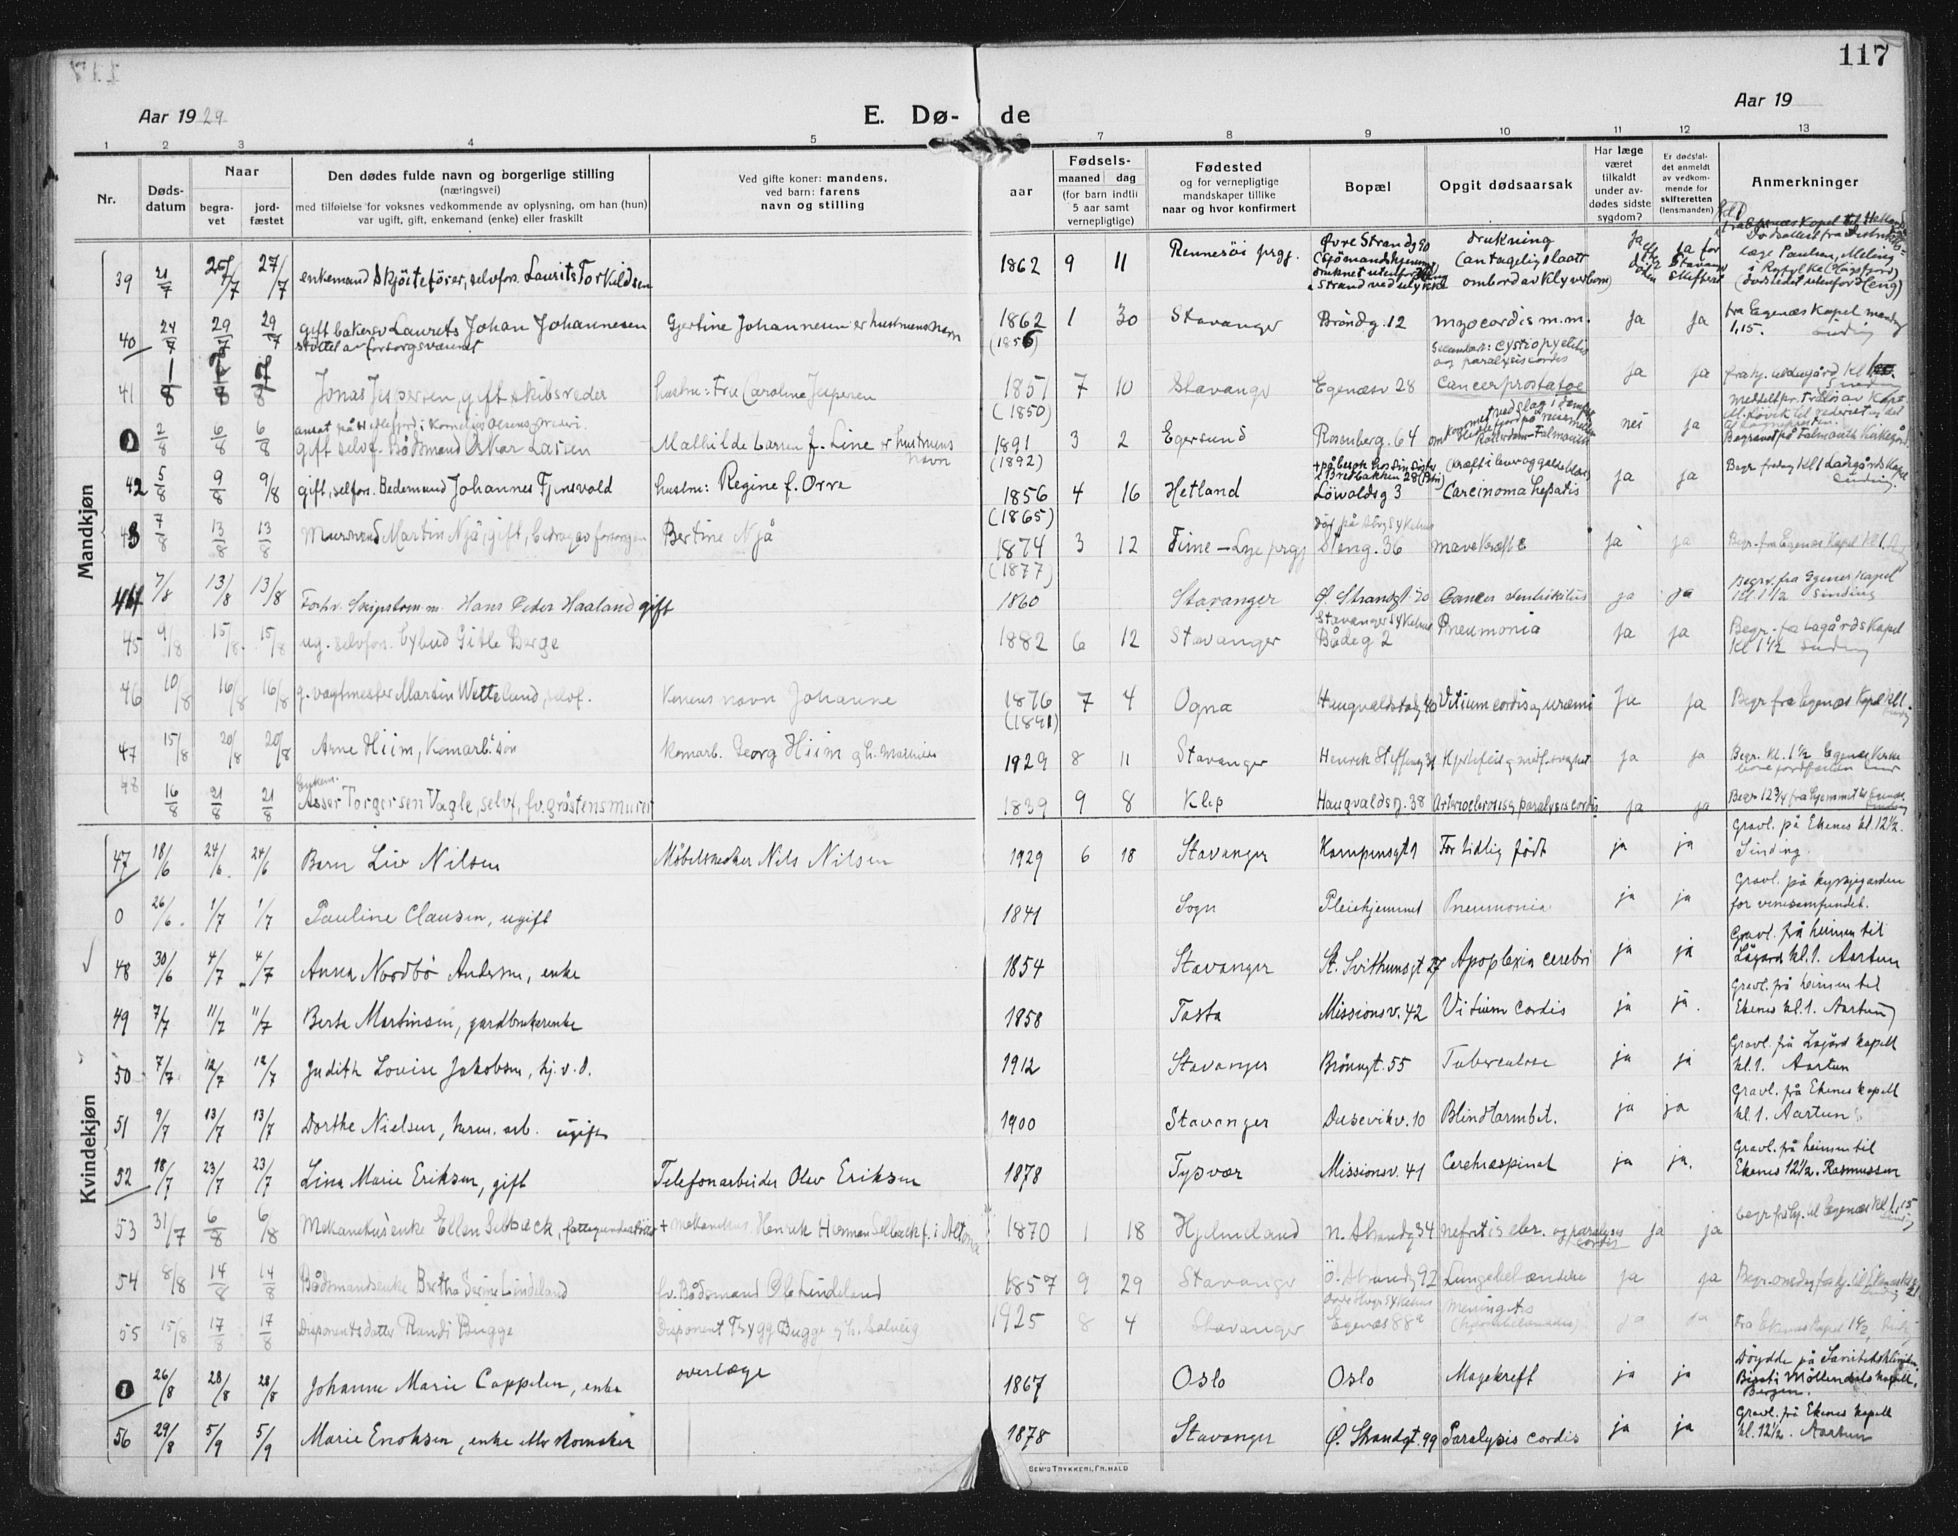 117
Aar 1929
E. Dø-
de
Aar 19
1 2 3 4 5 6 7 8 9 10 11 12 13
Nr.
Døds-
datum
Naar
begra-
vet
jord-
fæstet
Den dødes fulde navn og borgerlige stilling
(næringsvei)
med tilføielse for voksnes vedkommende av oplysning, om han (hun)
var ugift, gift, enkemand (enke) eller fraskilt
Ved gifte koner: mandens,
ved barn: farens
navn og stilling
aar
Fødsels-
maaned dag
(for barn indtil
5 aar samt
vernepligtige)
Fødested
og for vernepligtige
mandskaper tillike
naar og hvor konfirmert
Bopæl
Opgit dødsaarsak
Har læge
været
tilkaldt
under av-
dødes sidste
sygdom?
Er dødsfal-
det anmeldt
av vedkom-
mende for
skifteretten
(lensmanden)
Anmerkninger
Mandkjøn
39 21/7 27/7 27/7 enkemand Skjöiteförer, selvfors. Laurits Torkildsen 1862 9 11 Rennesöi prgj. Øvre Strandg 90 drukning
40 24/7 29/7 29/7 gift bakersv Laurits Johan Johannesen Gjertine Johannesen er hustruens navn 1862 1 30 Stavanger Bröndg. 12 myocordis m.m. ja ja fra Egenæs Kapel mandag
støttet av forsorgsvæsenet (1856) 1,15. Sinding
41 1/8 7/8 7/8 Jonas Jespersen, gift skibsreder hustru: Fru Caroline Jespersen 1851 7 10 Stavanger Egenæsv 28 Cancer prostatae ja ja
(1850)
2/8 6/8 6/8 gift selvf. Bådsmand Oskar Larsen Mathilde Larsen f. Line er hustruens navn 1891 3 2 Egersund Rosenberg. 64 nei ja Begravet på Falmouth Kirkegård
(1892)
42 5/8 9/8 9/8 gift, selvfors. Bedemand Johannes Fjensvold hustru: Regine f. Orre 1856 4 16 Hetland Lövoldsg 3 Carcinoma hepatis ja ja Begr. fredag kl 1 Ladegårds Kapel
(1865) Sinding
43 7/8 13/8 13/8 Murersvend Martin Njå, gift, bidrag av forsorgen Bertine Njå 1874 3 12 Time - Lye prgj Steng. 36 mavekræft ja ja Begr. fra Egenæs Kapel kl 1.
(1877)
44 7/8 13/8 13/8 Forhv. Skipstømm. Hans Peder Haaland gift 1860 Stavanger Ø. Strandgt. 20 Cancer ventrikulus ja ja Begrv. fra Egenes Kapel
kl 1 1/2 Sinding
45 9/8 15/8 15/8 ug. selvfors. bybud Gitle Berge 1882 6 12 Stavanger Stavanger Sykehus Bådeg 2 Pneumonia ja ja Begr. fra Lagårds Kapel
kl 1 1/2 Sinding
46 10/8 16/8 16/8 g. vagtmester Martin Wetteland, selvf. Konens navn Johanne 1876 7 4 Ogna Haugvaldstadg 40 Vitium cordis og uræmi ja ja Begr fra Egenæs Kapel kl 1
(1891)
47 15/8 20/8 20/8 Arne Hiim, Komarb. sön Komarb. Georg Hiim og h. Mathilde 1929 8 11 Stavanger Henrik Steffensg Hjertefeil og medf. svaghet ja ja
48 16/8 21/8 21/8 Enkem. Asser Torgersen Vagle, selvf, fv. gråstensmurer 1839 9 8 Klep Haugvaldsg. 38 Arteriosclerosis og paralysis cordis ja ja
Kvindekjøn
47 18/6 24/6 24/6 Barn Liv Nilsen Møbelsnekker Nils Nilsen 1929 6 18 Stavanger Kampensgt 1 For tidlig født ja ja Gravl. på Ekenes kl. 12 1/2.
Sinding.
0 26/6 1/7 1/7 Pauline Clausen, ugift 1841 Sogn Pleiehjemmet Pneumonia ja ja Gravl. på kyrkjegarden
for vennesamfundet.
48 30/6 4/7 4/7 Anna Nordbö Andersen, enke 1854 Stavanger St. Svithunsgt 27 Apoplexia cerebri ja ja Gravl. frå heimen til
Lågård kl. 1. Aartun
49 7/7 11/7 11/7 Berte Martinsen, gardbrukerenke 1858 Tasta Missionsv. 42 Vitium cordis ja ja. Gravl. frå heimen til
Ekenes kl. 1. Aartun
50 7/7 12/7 12/7 Judith Lovise Jakobsen, hj.v.d. 1912 Stavanger Brönngt. 55 Tuberculose ja ja Gravl. frå Lågård kapell
kl. 1. Aartun
51 9/7 13/7 13/7 Dorthe Nielsen, herm. arb. ugift 1900 Stavanger Dusevikv. 10 Blindtarmbet. ja ja Gravl. frå Ekenes kapell
kl. 1. Aartun
52 18/7 23/7 23/7 Lina Marie Eriksen, gift Telefonarbeider Olav Eriksen 1878 Tysvær Missionsv. 41 Cerebrospinal ja ja. Gravl. på heimen til
Ekenes 12 1/2. Rasmussen
53 31/7 6/8 6/8 Mekanikusenke Ellen Selbæck, fattigunderstöttet + mekanikus Henrik Herman Selbæck f. i Altona 1870 1 18 Hjelmeland n. Strandg 34 nefritis og paralysis cordis ja ja begr. fra hj. til Egenæs kl 1,15
54 8/8 14/8 14/8 Bådsmandsenke Bertha Serine Lindeland fv. Bådsmand Ole Lindeland 1857 9 29 Stavanger ö. Strandg 92 Lungebetændelse ja ja
55 15/8 17/8 17/8 Disponentsdatter Randi Bugge Disponent Trygg Bugge og h. Solveig 1925 8 4 Stavanger Egenæs 88a Meningitis ja ja
26/8 28/8 28/8 Johanne Marie Cappelen, enke overlæge 1867 Oslo Oslo Magekreft ja ja Döydde på Sanitetsklinikken
Bisatt Möllendals kapell,
Bergen.
56 29/8 5/9 5/9 Marie Enoksen, enke etter skomaker 1878 Stavanger Ø. Strandgt. 99 Paralysis cordis ja ja Gravl. frå Ekenes kapell
kl. 12 1/2. Aartun
SEM'S TRYKKERI, FR. HALD